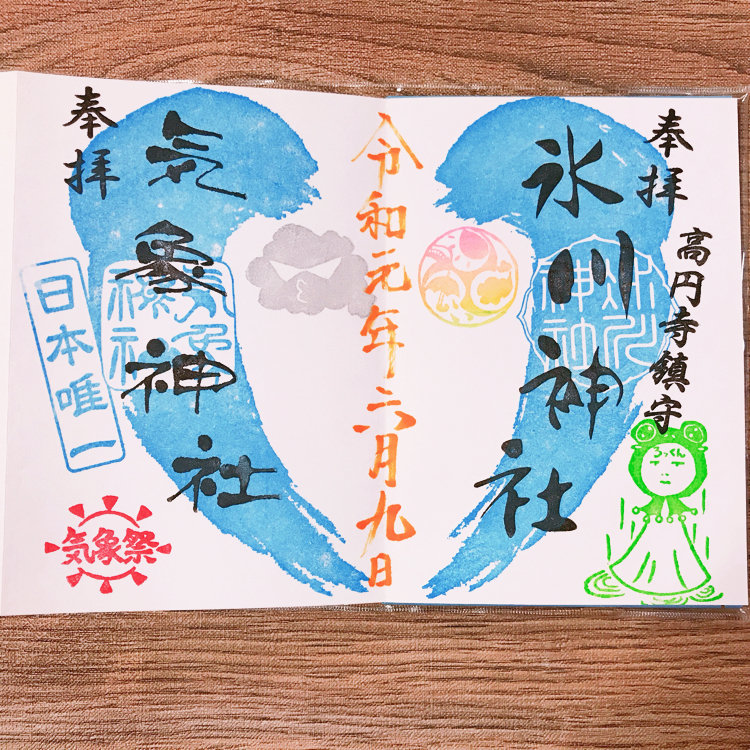 奉拝
高円寺鎮守
氷川神社
氷川神社
ろっくん
令和元年六月九日
奉拝
気象神社
気象神社
日本唯一
気象祭